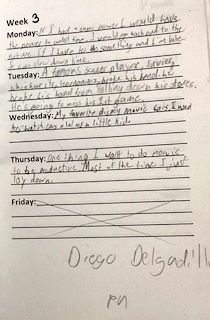 Week 3
Monday: If I had a super power I would have
the power to control time. I would go back to the
future. If I have to do something and I'm late
I can slow down time.
Tuesday: A famous soccer player, Javier
chicharito Hernandez broke his hand. he
broke his hand from falling down his stairs.
He is going to miss his 1st game.
Wednesday: My favorite disney movie Cars. I used
to watch cars a lot as a little kid.
Thursday: One thing I want to do more is
to be productive. Most of the time I just
lay down.
Friday:
Diego Delgadill